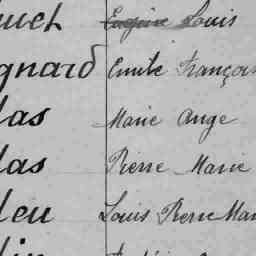 Louis
gnard Emile François
las Marie Ange
las Pierre Marie
leu Louis Pierre Mar